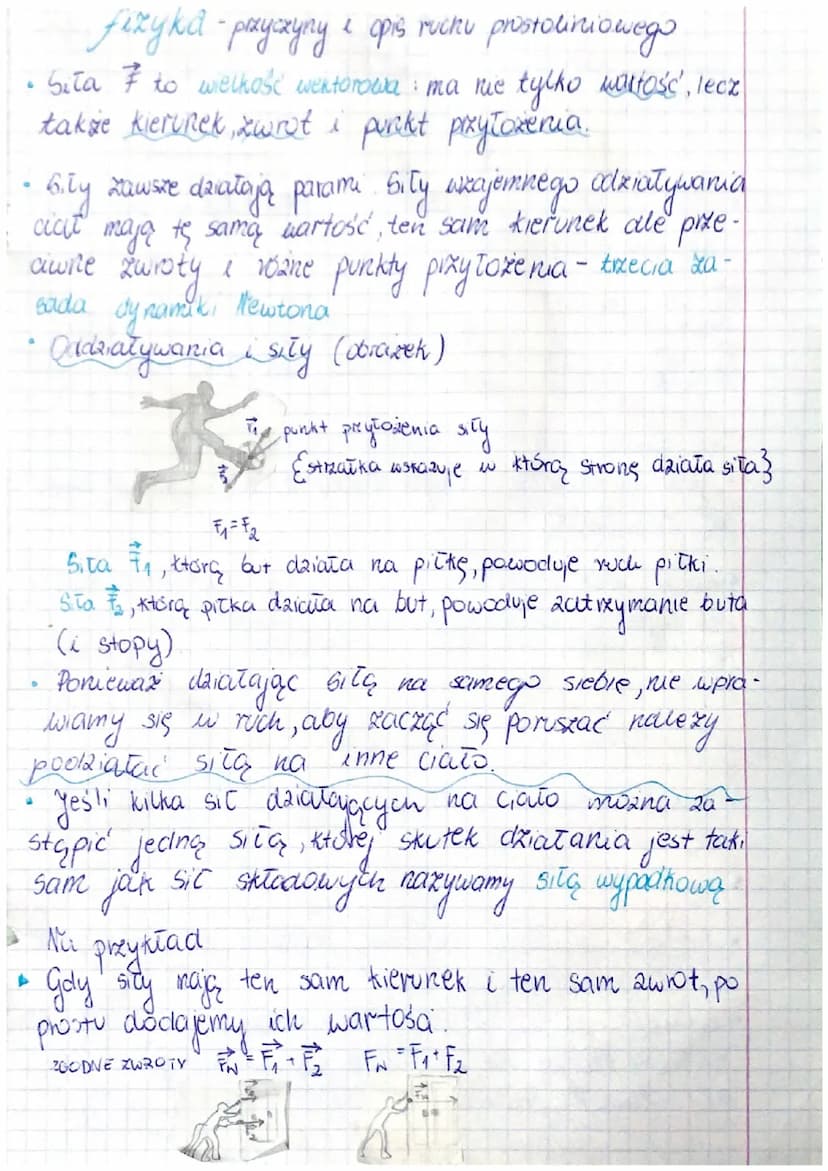 fizyka - przyczyny i opis ruchu prostoliniowego
• Siła F to wielkość wektorowa : ma nie tylko wartość, lecz
także kierunek, zwrot i punkt przyłożenia.
• Siły zawsze działają parami. Siły wzajemnego odziaływania
ciał mają tę samą wartość, ten sam kierunek ale prze-
ciwne zwroty i różne punkty przyłożenia - trzecia za-
sada dynamiki Newtona
• Oddziaływania i siły (obrazek)
F₁ punkt przyłożenia siły
{strzałka wskazuje w którą stronę działa siła}
F₂
F₁ = F₂
Siła F₁, którą but działa na piłkę, powoduje ruch piłki.
Siła F₂, którą piłka działa na but, powoduje zatrzymanie buta
(i stopy)
• Ponieważ działając siłą na samego siebie, nie wpra-
wiamy się w ruch, aby zacząć się poruszać należy
podziałać siłą na inne ciało.
• Jeśli kilka sił działających na ciało można za-
stąpić jedną siłą, której skutek działania jest taki
sam jak sił składowych nazywamy siłą wypadkową
Na przykład
Gdy siły mają ten sam kierunek i ten sam zwrot, po
prostu dodajemy ich wartości.
ZGODNE ZWROTY F_W = F₁ + F₂ F_W = F₁ + F₂